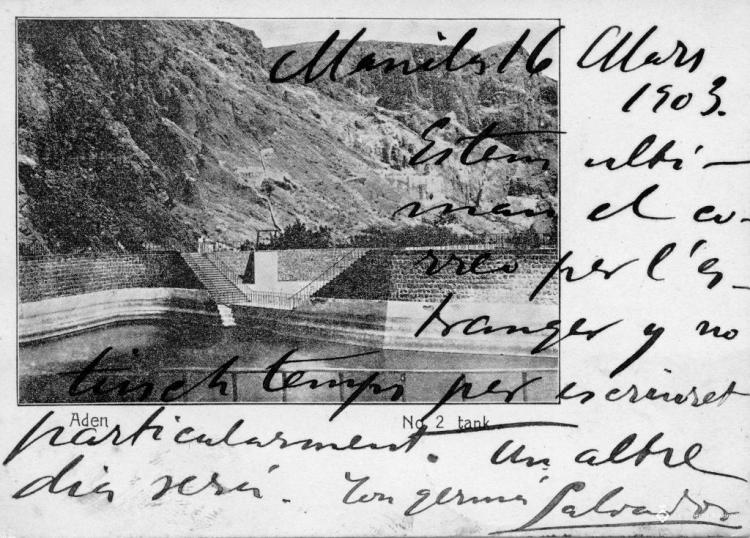 Manila 16 Mars
1903.
Estem ulti-
man el co-
rreo per l'es-
tranger y no
tinch temps per escriuret
Aden
No. 2 tank
particularment. Un altre
dia será. Ton germá Salvador